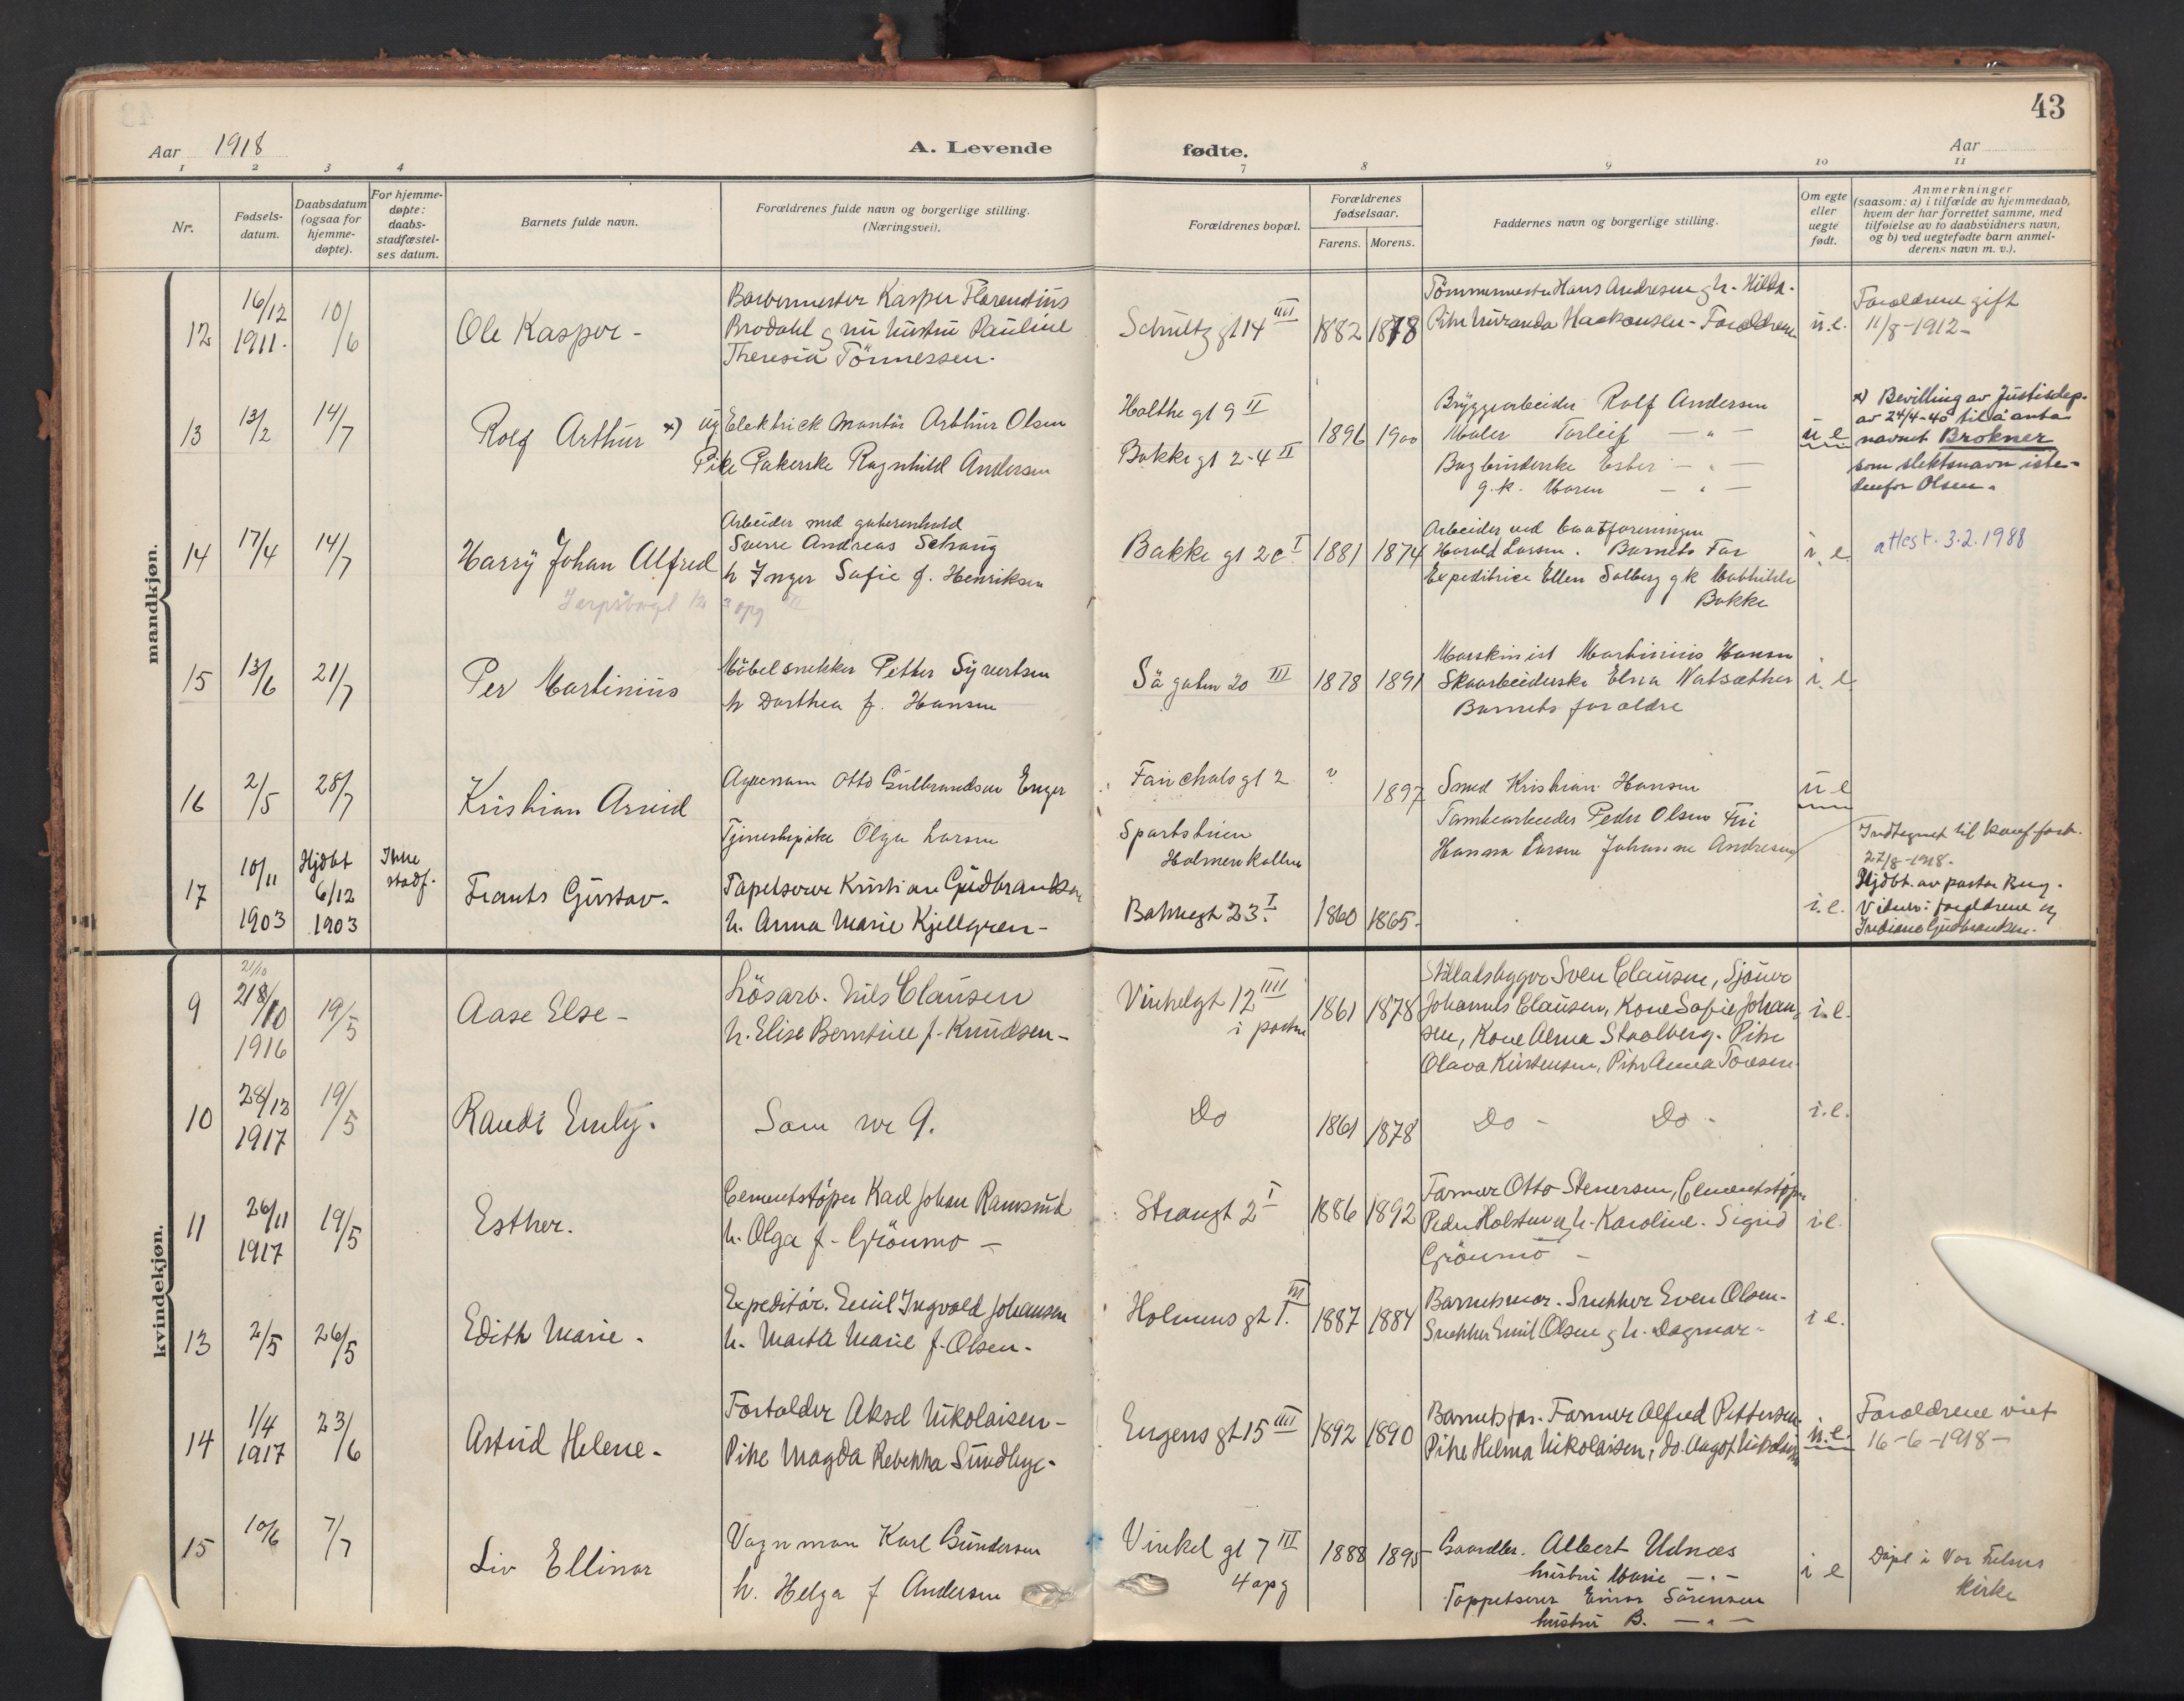 43
Aar 1918
A. Levende
fødte.
Aar
1 2 3 4 7 8 9 10 11
Nr.
Fødsels-
datum.
Daabsdatum
(ogsaa for
hjemme-
døpte).
For hjemme-
døpte:
daabs-
stadfæstel-
ses datum.
Barnets fulde navn.
Forældrenes fulde navn og borgerlige stilling.
(Næringsvei).
Forældrenes bopæl.
Forældrenes
fødselsaar.
Farens. Morens.
Faddernes navn og borgerlige stilling.
Om egte
eller
uegte
født.
Anmerkninger
(saasom: a) i tilfælde av hjemmedaab,
hvem der har forrettet samme, med
tilføielse av to daabsvidners navn,
og b) ved uegtefødte barn anmel-
derens navn m. v.).
mandkjøn.
12
16/12
1911.
10/6
Ole Kasper -
Barbermester Kasper Florentius
Brodahl og nu hustru Pauline
Theresia Tönnessen.
Schultz gt 14 IIII
1882 1878
Tömmermester Hans Andresen og h. Hilda.
Pike Miranda Haakonsen - Forældrene
u.e.
Forældrene gift
11/8-1912-
13
13/2
14/7
Rolf Arthur x)
ug. Elektrick Montör Arthur Olsen
Pike Pakerske Ragnhild Andersen
Holthe gt 9 II
Bakke gt 2-4 II
1896 1900
Bryggearbeider Rolf Andersen
Maler Torleif - " -
Bagbinderske Ester - " -
g.k. Maren - " -
u e
x) Bevilling av Justisdep.
av 24/4-40 til å anta
navnet Brokner
som slektsnavn iste-
denfor Olsen.
14
17/4
14/7
Harry Johan Alfred
Arbeider ved gaterenhold
Sverre Andreas Schang
h Inger Sofie f. Henriksen
opg III
Bakke gt 2c I
1881 1874
Arbeider ved
Harald Larsen. Barnets Far
Expeditrice Ellen Solberg g k Mathilde
Bakke
i. e.
attest. 3.2.1988
15
13/6
21/7
Per Martinius
Möbelsnekker Petter Syvertsen
h Dorthea f. Hansen
Sä gaten 20 III
1878 1891
Maskinist Martinius Hansen
Skoarbeiderske Elna
Barnets forældre
i. e
16
2/5
28/7
Kristian Arvid
Otto Gulbrandsen Enger
Tjenestepike Olga Larsen
Fauchals gt 2
Sportstuen
Holmenkollen
?
1897
Smed Kristian Hansen
Peder Olsen Fri
Hanna Larsen Johanne Andresen
u e
17
10/11
1903
Hjdbt
6/12
1903
Ikke
stadf.
Frants Gustav.
Tapetserer Kristian Gudbrandsen
h. Anna Marie Kjellgren -
Bakkegt 23. I
1860 1865.
i.e.
Indtegnet til konf. forb.
27/8-1918.
Hjdbt. av pastor Berg.
Vidner: forældrene og
Gudbrandsen.
kvindekjøn.
9
21/10
218/10
1916
19/5
Aase Else -
Lösarb. Nils Clausen
h. Elise Berntine f. Knudsen -
Vinkelgt 12 IIII
i porten
1861 1878
Stilladsbygger Sven Clausen, Sjöuer
Johannes Clausen, Kone Sofie Johan-
sen, Kone Alma Staalberg. Pike
Olava Kristensen, Pike Anna Toresen
i.e.
10
28/12
1917
19/5
Randi Emly.
Som nr 9.
Do
1861 1878
Do - Do -
i.e.
11
26/11
1917
19/5
Esther.
Cementstöper Karl Johan Ramsrud
h. Olga f. Grönmo -
Strangt 2 I
1886 1892
Farmer Otto Stenersen, Cementstöper
Peder Holsten og h. Karoline. Sigrid
Grönmo -
i.e.
13
2/5
26/5
Edith Marie -
Expeditör. Emil Ingvald Johansen
h. Marta Marie f. Olsen.
Holmens gt 1. III
1887 1884
Barnets mor. Snekker Even Olsen.
Snekker Emil Olsen og h. Dagmar.
i e.
14
1/4
1917
23/6
Astrid Helene -
Fortolder Aksel Nikolaisen -
Pike Magda Rebekka Sundbye -
Eugens gt 15 IIII
1892 1890
Barnets far. Farmer Alfred Pettersen
Pike Helma Nikolaisen, do. Aagot Nikolaisen
u.e.
Forældrene viet
16-6-1918-
15
10/6
7/7
Liv Ellinor
Vognman Karl Gundersen
h. Helga f Andersen
Vinkel gt 7 III
4 opg
1888 1895
Gaardbr. Albert Udnæs
hustru Marie - " -
Tappetserer Einar Sörensen
hustru B. - " -
i e
Döpt i Vor Frelsers
Kirke